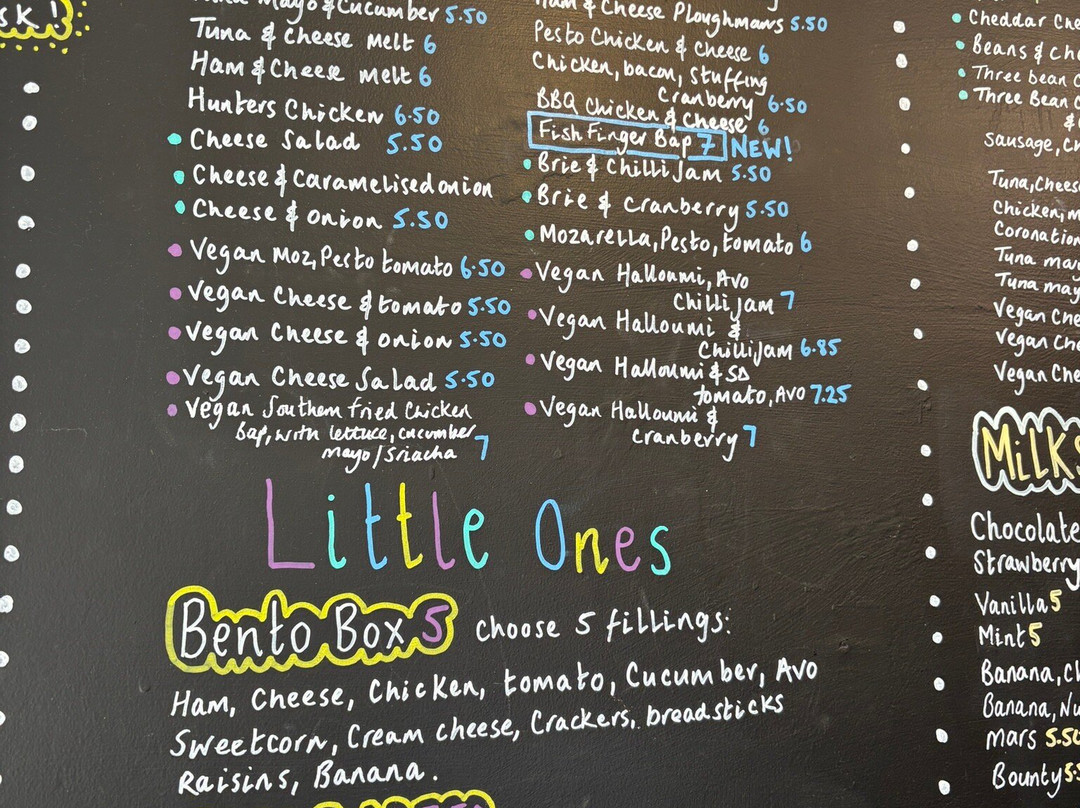 SK!
Mayo & Cucumber 5.50
Tuna & Cheese Melt 6
Ham & Cheese Melt 6
Hunters Chicken 6.50
Cheese Salad 5.50
Cheese & Caramelised onion
Cheese & onion 5.50
Vegan Moz, Pesto tomato 6.50
Vegan Cheese & tomato 5.50
Vegan Cheese & onion 5.50
Vegan Cheese Salad 5.50
Vegan Southern Fried Chicken
Bap, with lettuce, cucumber
Mayo/Sriacha 7
Ham & Cheese Ploughmans 5.50
Pesto Chicken & Cheese 6
Chicken, bacon, Stuffing
Cranberry 6.50
BBQ Chicken & Cheese 6
Fish Finger Bap 7 NEW!
Brie & Chilli Jam 5.50
Brie & Cranberry 5.50
Mozarella, Pesto, tomato 6
Vegan Halloumi, Avo
Chilli Jam 7
Vegan Halloumi &
Chilli Jam 6.85
Vegan Halloumi & SD
tomato, AVO 7.25
Vegan Halloumi &
Cranberry 7
Little Ones
Bento Box 5 Choose 5 fillings:
Ham, Cheese, Chicken, tomato, Cucumber, Avo
Sweetcorn, Cream cheese, Crackers, breadsticks
Raisins, Banana.
Cheddar Che
Beans & Ch
Three bean C
Three Bean C
&
Sausage, Ch
Tuna, Cheese
Chicken, m
Coronation
Tuna may
Tuna may
Vegan Che
Vegan Che
Vegan Che
MILKS
Chocolate
Strawberry
Vanilla 5
Mint 5
Banana, Ch
Banana, Nu
mars 5.50
Bounty 5.5